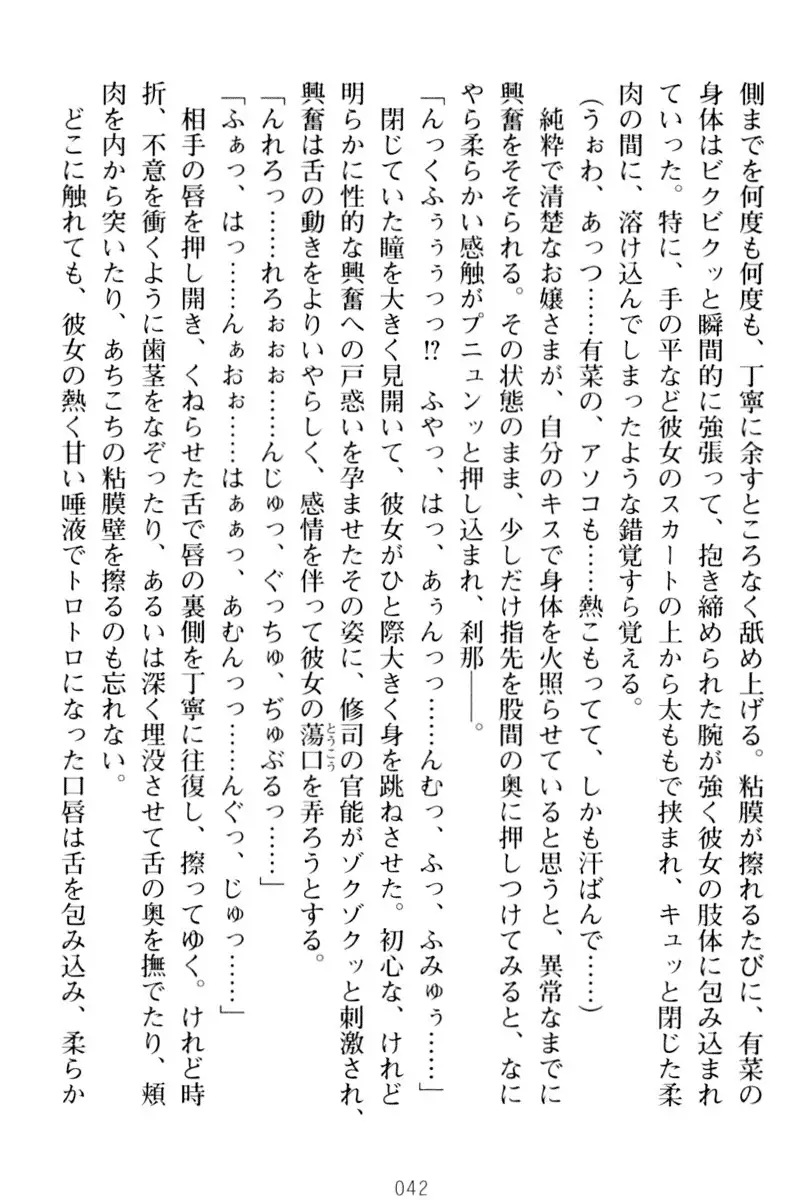 側までを何度も何度も、丁寧に余すところなく舐め上げる。粘膜が擦れるたびに、有菜の
身体はビクビクッと瞬間的に強張って、抱き締められた腕が強く彼女の肢体に包み込まれ
ていった。特に、手の平など彼女のスカートの上から太ももで挟まれ、キュッと閉じた柔
肉の間に、溶け込んでしまったような錯覚すら覚える。
(うぉわ、あっつ……有菜の、アソコも……熱こもってて、しかも汗ばんで……)
純粋で清楚なお嬢さまが、自分のキスで身体を火照らせていると思うと、異常なまでに
興奮をそそられる。その状態のまま、少しだけ指先を股間の奥に押しつけてみると、なに
やら柔らかい感触がプニュンッと押し込まれ、刹那――。
「んっくふぅぅぅっっ!?　ふやっ、はっ、あぅんっっ……んむっ、ふっ、ふみゅぅ……」
閉じていた瞳を大きく見開いて、彼女がひと際大きく身を跳ねさせた。初心な、けれど
明らかに性的な興奮への戸惑いを孕ませたその姿に、修司の官能がゾクゾクッと刺激され、
興奮は舌の動きをよりいやらしく、感情を伴って彼女の蕩口を弄ろうとする。
とうこう
「んれろっ……れろぉぉぉ……んじゅっ、ぐっちゅ、ぢゅぶるっ……」
「ふぁっ、はっ……んぁおぉ……はぁぁっ、あむんっっ……んぐっ、じゅっ……」
相手の唇を押し開き、くねらせた舌で唇の裏側を丁寧に往復し、擦ってゆく。けれど時
折、不意を衝くように歯茎をなぞったり、あるいは深く埋没させて舌の奥を撫でたり、頬
肉を内から突いたり、あちこちの粘膜壁を擦るのも忘れない。
どこに触れても、彼女の熱く甘い唾液でトロトロになった口唇は舌を包み込み、柔らか
042